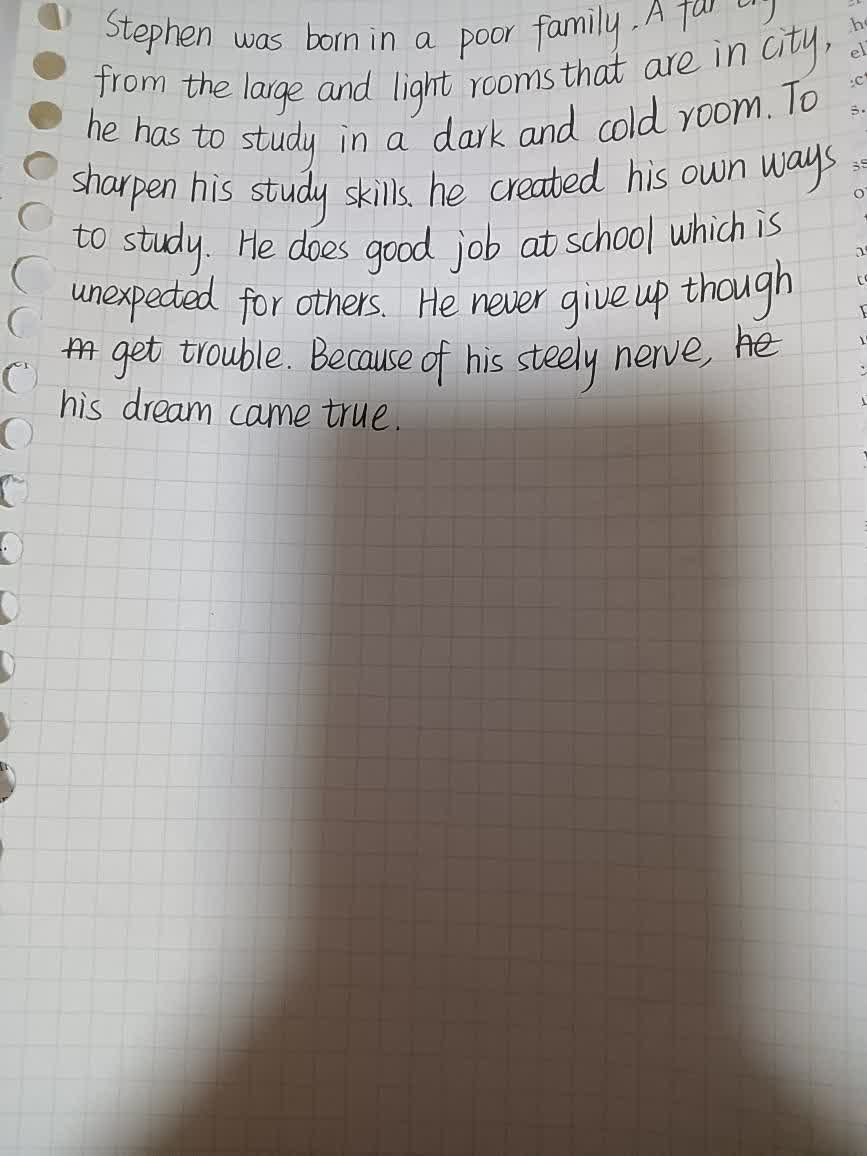 Stephen was born in a poor family. A far cry
from the large and light rooms that are in city,
he has to study in a dark and cold room. To
sharpen his study skills. he created his own ways
to study. He does good job at school which is
unexpected for others. He never give up though
get trouble. Because of his steely nerve, he
his dream came true.